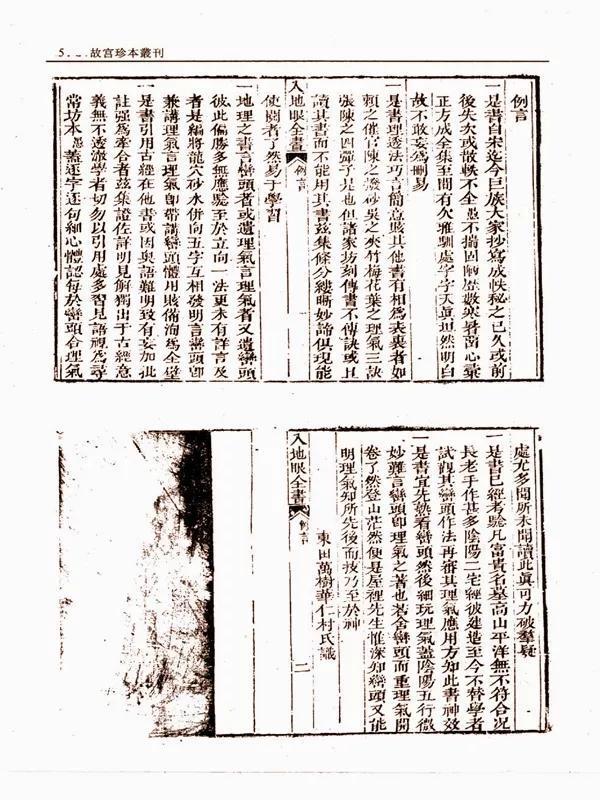 故宮珍本叢刊
例言
一是書自宋迄今巨族大家抄寫成帙秘之已久或前
後失次或散帙不全愚不揣固陋歷數寒暑苦心彙
正方成全集至間有欠雅馴處字字天眞坦然明白
故不敢妄爲刪易
一是書理透法巧言簡意賅其他書有相爲表裏者如
賴之催官陳之潑砂吳之夾竹梅花葉之理氣三訣
張陳之四彈子是也但諸家坊刻傳書不傳訣或且
讀其書而不能用其書兹集條分縷晰妙諦俱現能
入地眼全書 例言
使閱者了然易于學習
一地理之書言巒頭者或遺理氣言理氣者又遺巒頭
彼此偏勝多無應驗至於立向一法更未有詳言及
者是編將龍穴砂水併向五字互相發明言巒頭卽
兼講理氣言理氣卽帶講巒頭體用賅備洵爲全璧
一是書引用古經在他書或因奥語難明致有妄加批
註强爲牽合者兹集證佐詳明見解獨出于古經意
義無不透澈學者切勿以引用處多習見語視爲尋
常坊本愚蓋逐字逐句細心體認每於巒頭合理氣
處尤多聞所未聞讀此眞可力破羣疑
一是書已經考驗凡富貴名墓高山平洋無不符合况
長老手作甚多陰陽二宅經彼建造至今不替學者
試觀其巒頭作法再審其理氣應用方知此書神效
一是書宜先熟看巒頭然後細玩理氣蓋陰陽五行微
妙難言巒頭卽理氣之著也若舍巒頭而重理氣開
卷了然登山茫然便是屋裡先生惟深知巒頭又能
明理氣知所先後而技乃至於神
東田萬樹華仁村氏識
入地眼全書 例言 二